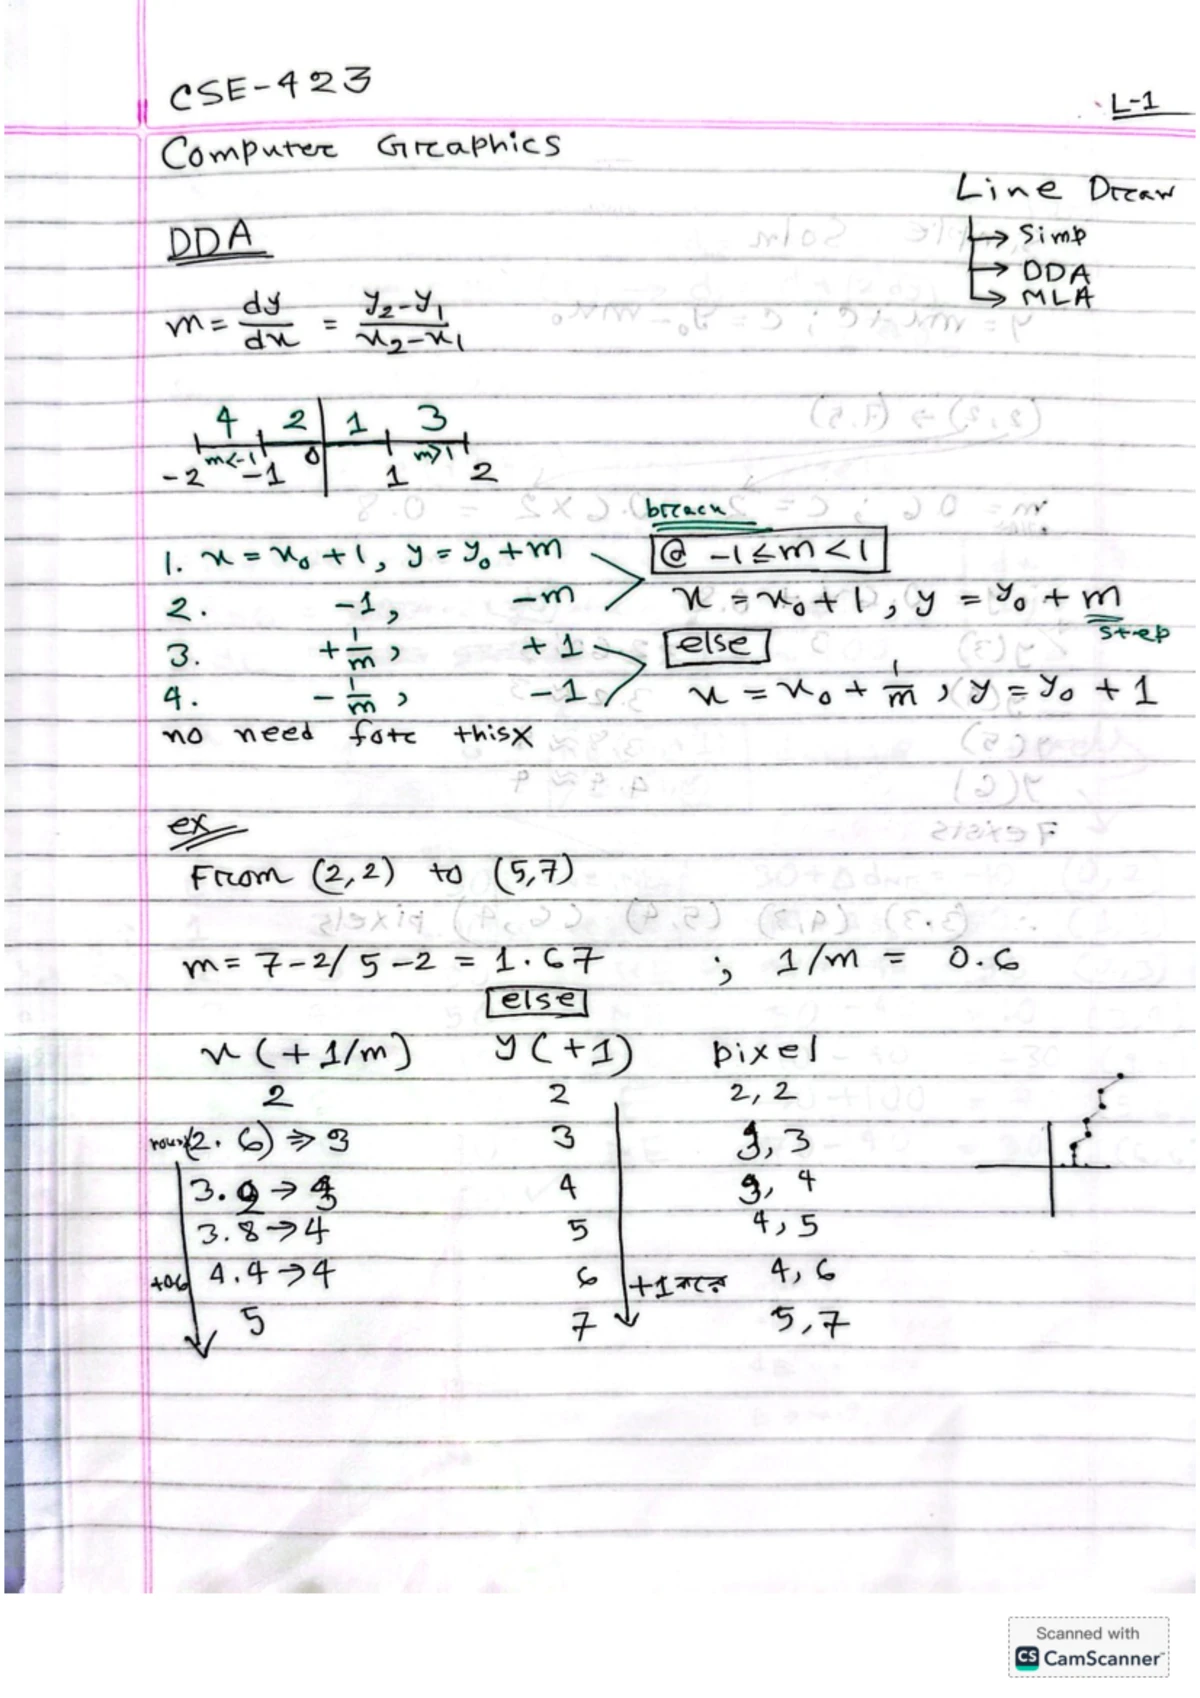 CSE-423
L-1
Computer Graphics
Line Draw
→ Simp
→ DDA
→ MLA
DDA
m = dy/dx = y₂-y₁/x₂-x₁
4 2 1 3
m<-1 0 m>1
-2 -1 1 2
1. x = x₀ + 1, y = y₀ + m
2. -1, -m
3. + 1/m, + 1
4. - 1/m, -1
no need for this x
@ -1 ≤ m < 1
x = x₀ + 1, y = y₀ + m
step
else
x = x₀ + 1/m, y = y₀ + 1
ex
From (2,2) to (5,7)
m = 7-2/5-2 = 1.67 ; 1/m = 0.6
else
x (+1/m) y (+1) pixel
2 2 2, 2
round(2.6) ⇒ 3 3 3, 3
3.2 → 3 4 3, 4
3.8 → 4 5 4, 5
+0.6 4.4 → 4 6 +1 করে 4, 6
5 7 5, 7
Scanned with
CS CamScanner